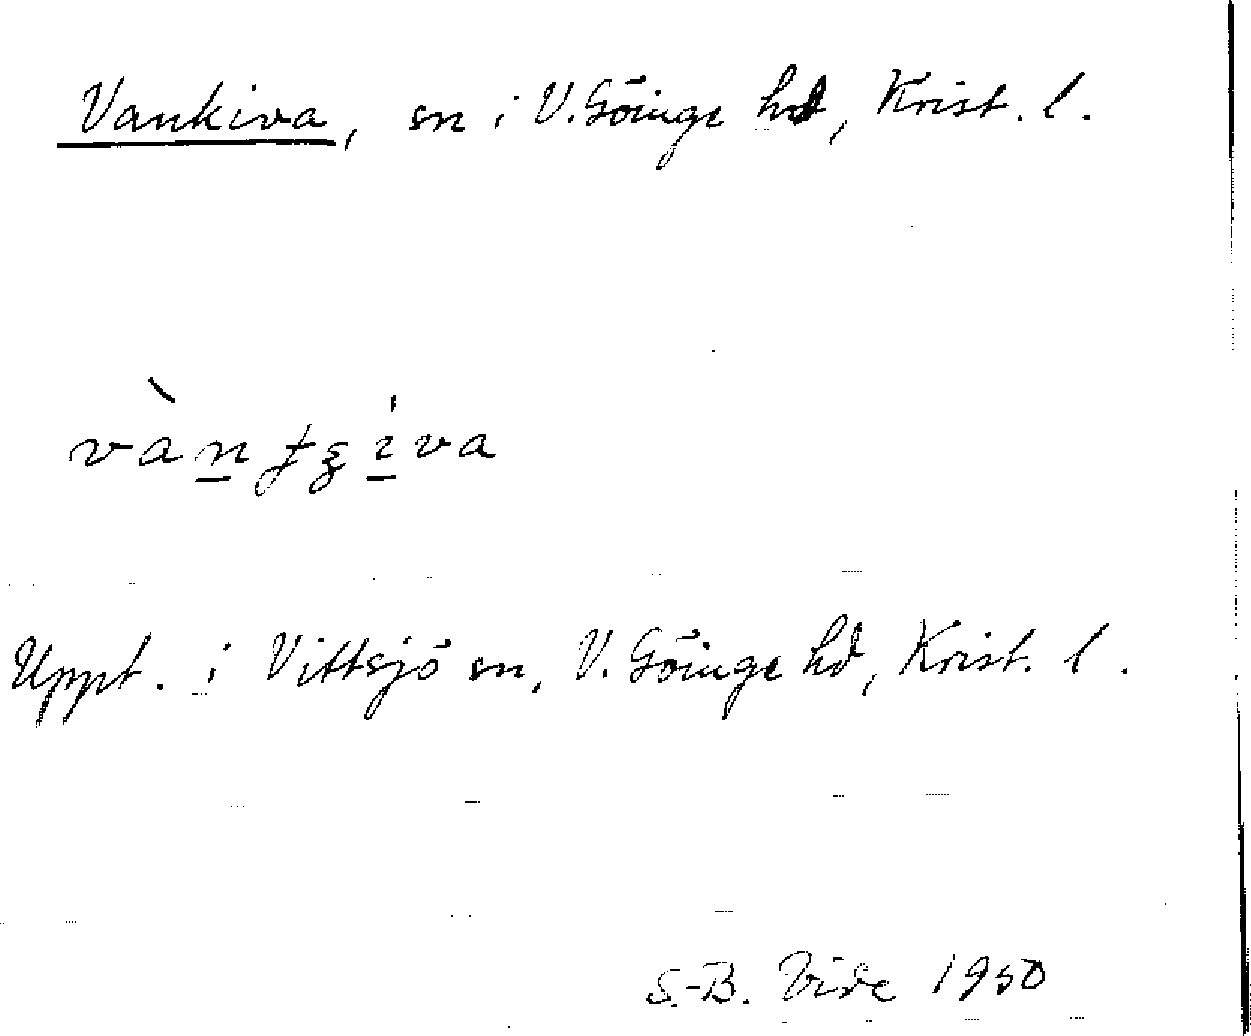 Vankiva, sn i V. Göinge hd, Krist. l.
Uppt. i Vittsjö sn, V. Göinge hd, Krist. l.
S.-B. Vide 1950